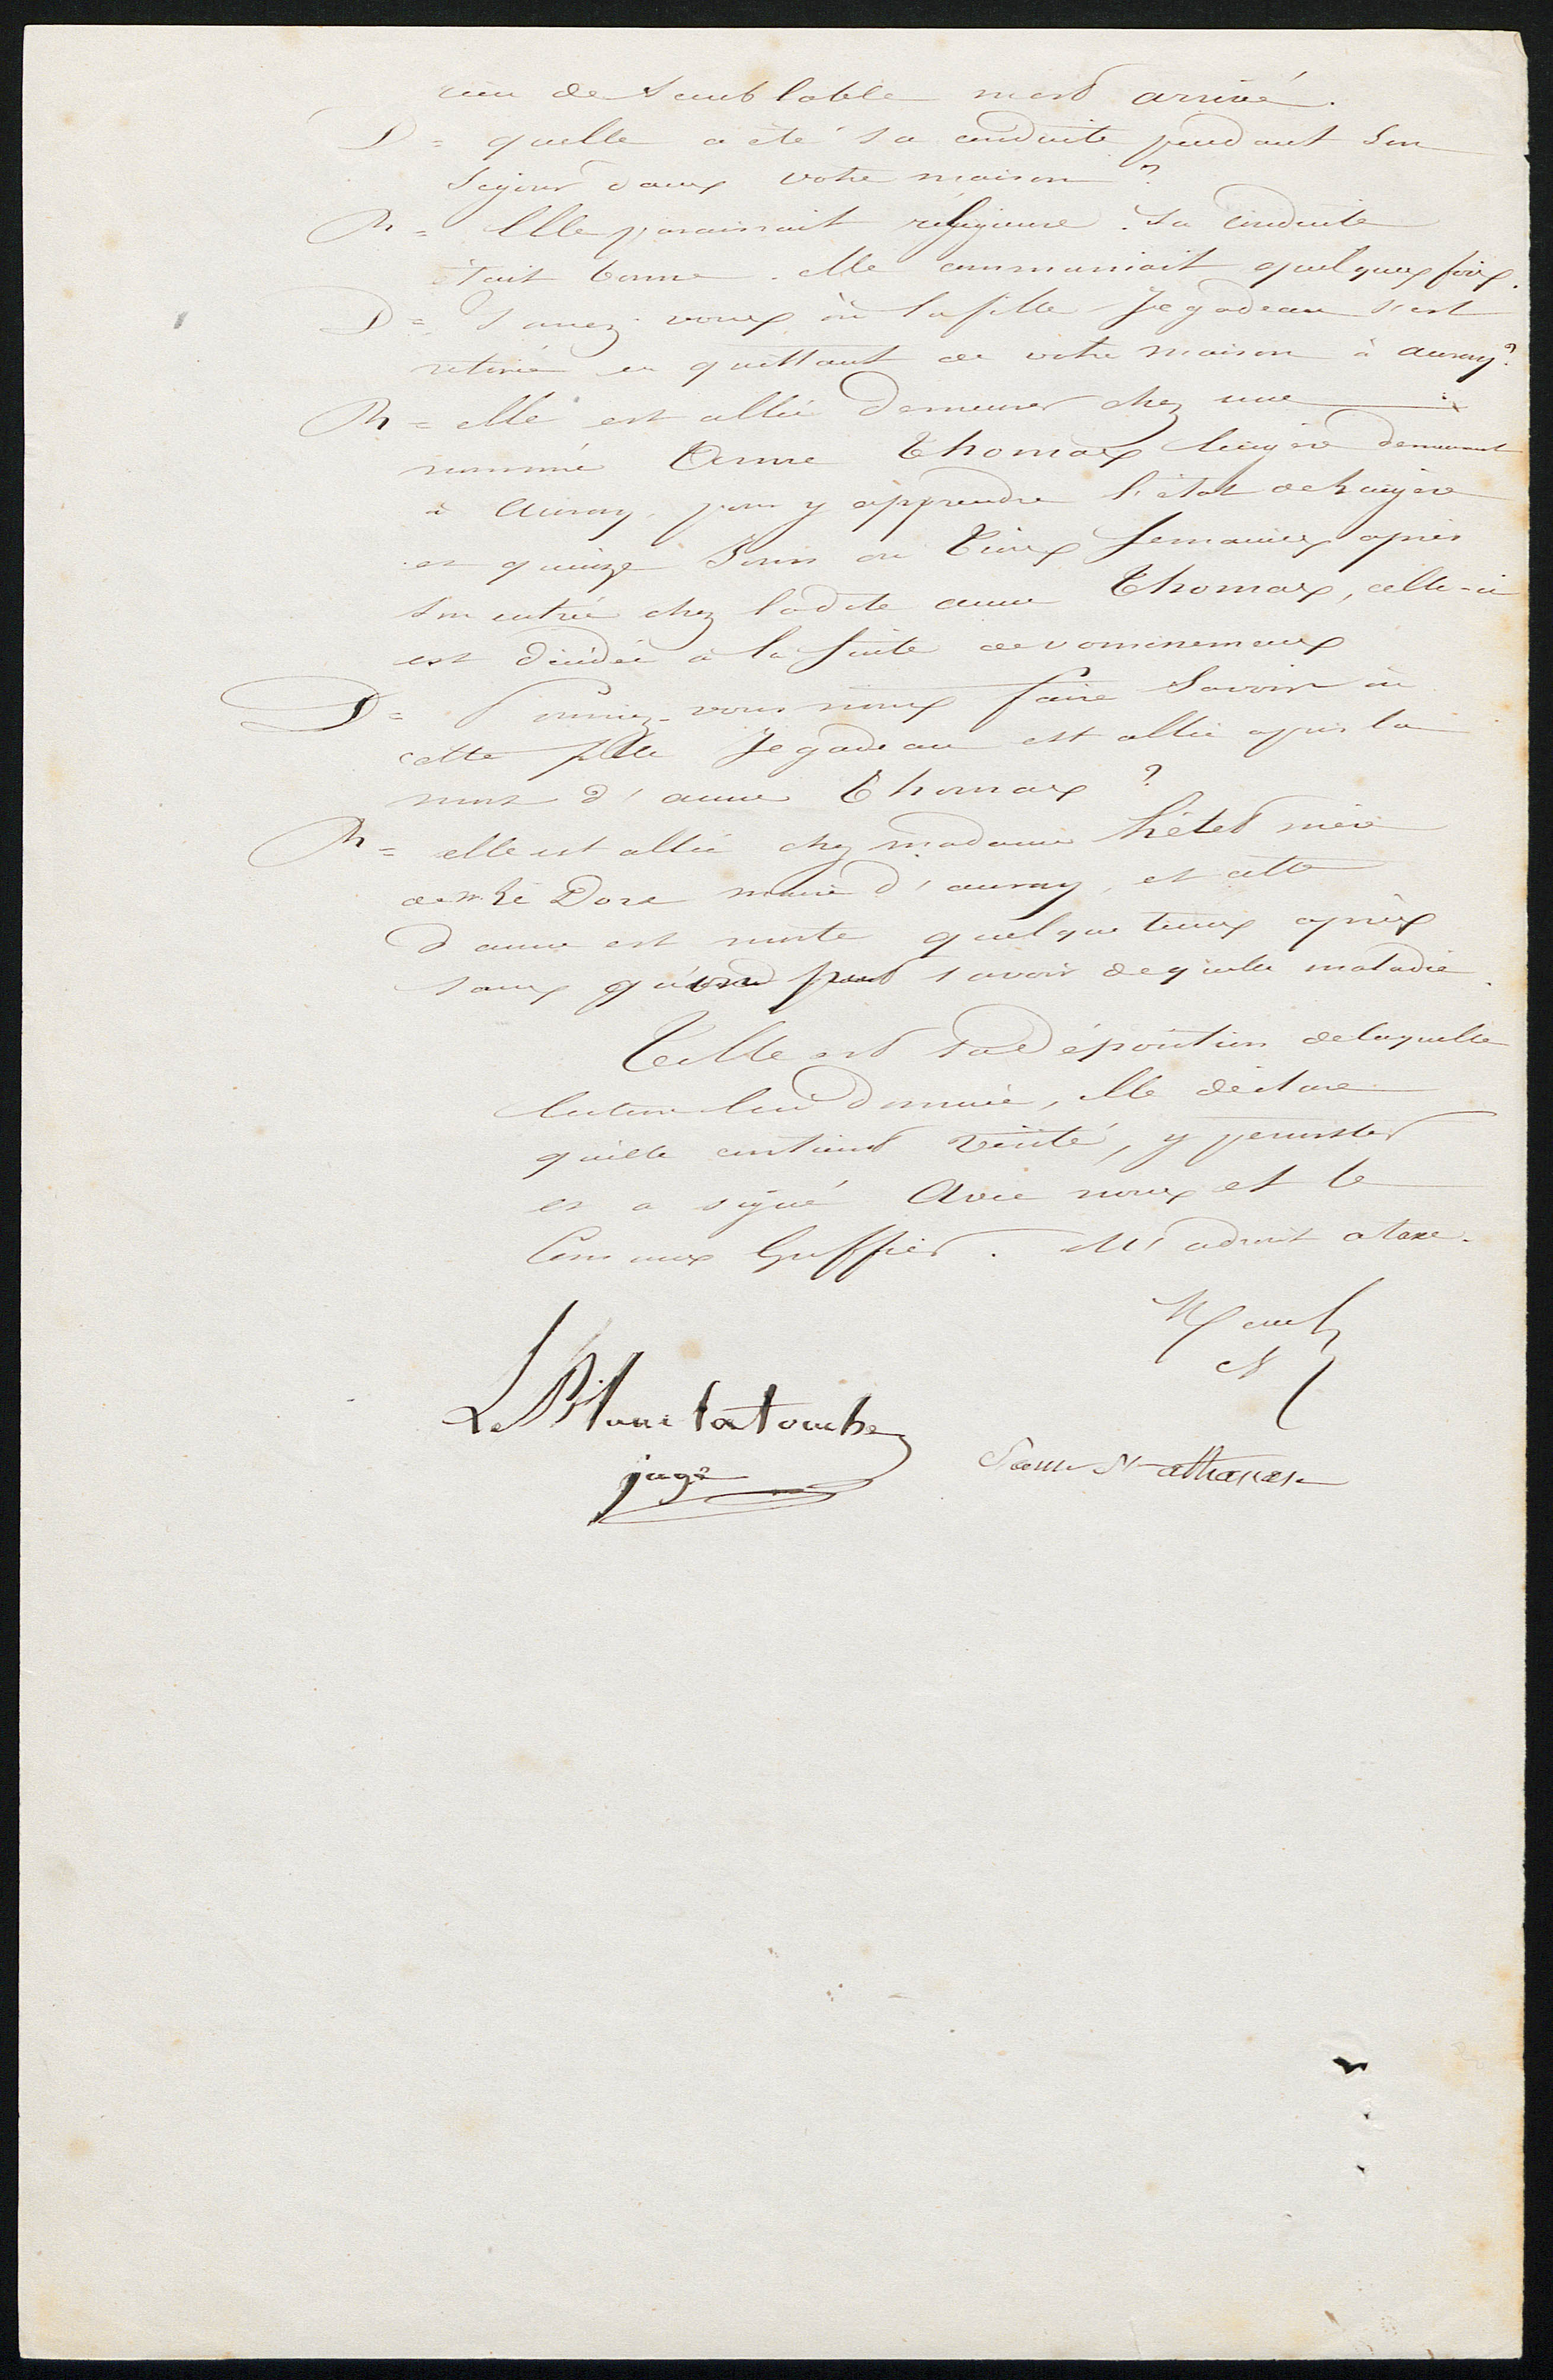 rien de semblable n'est arrivé.
D = quelle a été sa conduite pendant son
séjour dans votre maison ?
R = Elle paraissait religieuse. Sa conduite
était bonne. elle communiait quelques fois.
D = savez-vous où la fille Jegadeau s'est
retirée en quittant de votre maison à auray ?
R = elle est allée demeurer chez une
nommée Anne Thomas lingère demeurant
à Auray, pour y apprendre l'état de lingère
et quinze Jours ou trois semaines après
son entrée chez ladite anne Thomas, celle-ci
est décédée à la suite de vomissements
D = Pourriez-vous nous faire savoir où
cette fille Jegadeau est allée après la
mort d'anne Thomas ?
R = elle est allée chez madame hétel mère
de Mr hé Doré maire d'auray, et cette
dame est morte quelque tems après
sans qu'on put savoir de quelle maladie.
Telle est sa déposition de laquelle
lecture lui donnée, elle déclare
qu'elle contient vérité, y persister
et a signé Avec nous et le
Commis Greffier. adroit a taxe.
Le Blanc latouche
juge
Soeur St athanase